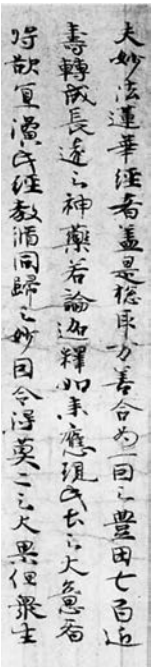 夫妙法蓮華經者蓋是惣取万善合為一因之豊田七百近
壽轉成長遠之神藥若論迦釋如来應現此土之大意者
将欲宜演此經教脩同歸之妙因令得莫二之大果但衆生